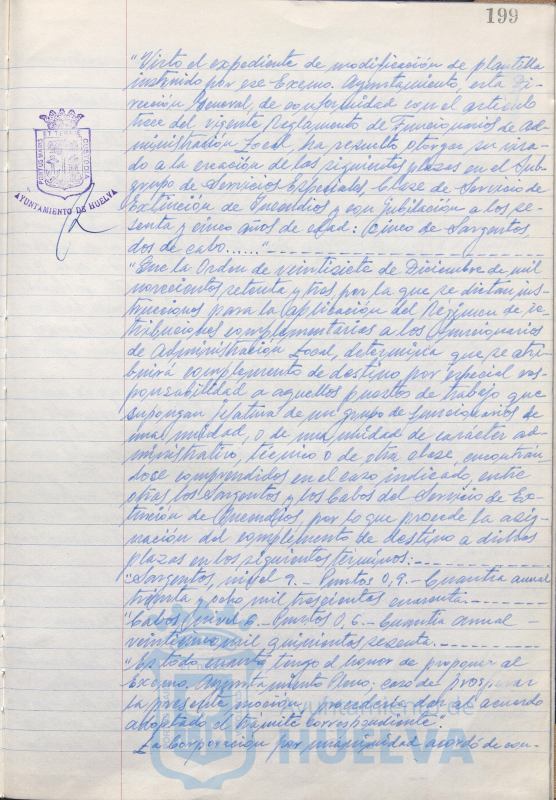 199
"Visto el expediente de modificación de plantilla
instruido por ese Excmo. Ayuntamiento, esta Di-
rección General, de conformidad con el artículo
trece del vigente Reglamento de Funcionarios de Ad-
ministración Local, ha resuelto otorgar su visa-
do a la creación de las siguientes plazas en el Sub-
grupo de Servicios Especiales Clase de Servicio de
Extinción de Incendios y con jubilación a los se-
senta y cinco años de edad: Cinco de Sargentos,
dos de cabo......"
"Que la Orden de veintisiete de Diciembre de mil
novecientos setenta y tres por la que se dictan ins-
trucciones para la aplicación del Régimen de re-
tribuciones complementarias a los Funcionarios
de Administración Local, determina que se atri-
buirá complemento de destino por especial res-
ponsabilidad a aquellos puestos de trabajo que
supongan jefatura de un grupo de funcionarios de
una unidad, o de una unidad de carácter ad-
ministrativo, técnico o de otra clase, encontrán-
dose comprendidos en el caso indicado, entre
otras los Sargentos y los Cabos del Servicio de Ex-
tinción de Incendios, por lo que procede la asig-
nación del complemento de destino a dichas
plazas en los siguientes términos:
"Sargentos, nivel 9.- Puntos 0,9.- Cuantía anual
treinta y ocho mil trescientas cuarenta.
"Cabos, nivel 6.- Puntos 0,6.- Cuantía anual -
veinticinco mil quinientas sesenta.
"Es todo cuanto tengo el honor de proponer al
Excmo. Ayuntamiento Pleno: caso de prosperar
la presente moción, procedería dar al acuerdo
adoptado el trámite correspondiente".
La Corporación por unanimidad acordó de con-
AYUNTAMIENTO DE HUELVA
HUELVA